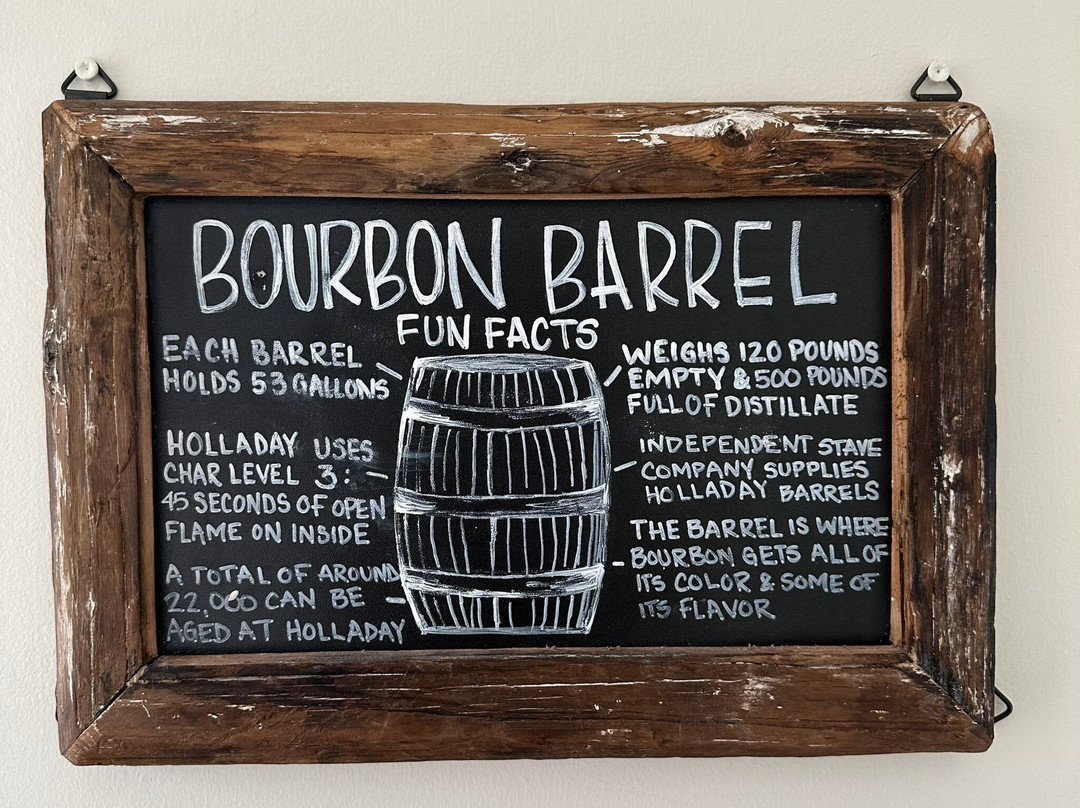 BOURBON BARREL
FUN FACTS
EACH BARREL
HOLDS 53 GALLONS
HOLLADAY USES
CHAR LEVEL 3:
45 SECONDS OF OPEN
FLAME ON INSIDE
A TOTAL OF AROUND
22,000 CAN BE
AGED AT HOLLADAY
WEIGHS 120 POUNDS
EMPTY & 500 POUNDS
FULL OF DISTILLATE
INDEPENDENT STAVE
COMPANY SUPPLIES
HOLLADAY BARRELS
THE BARREL IS WHERE
BOURBON GETS ALL OF
ITS COLOR & SOME OF
ITS FLAVOR